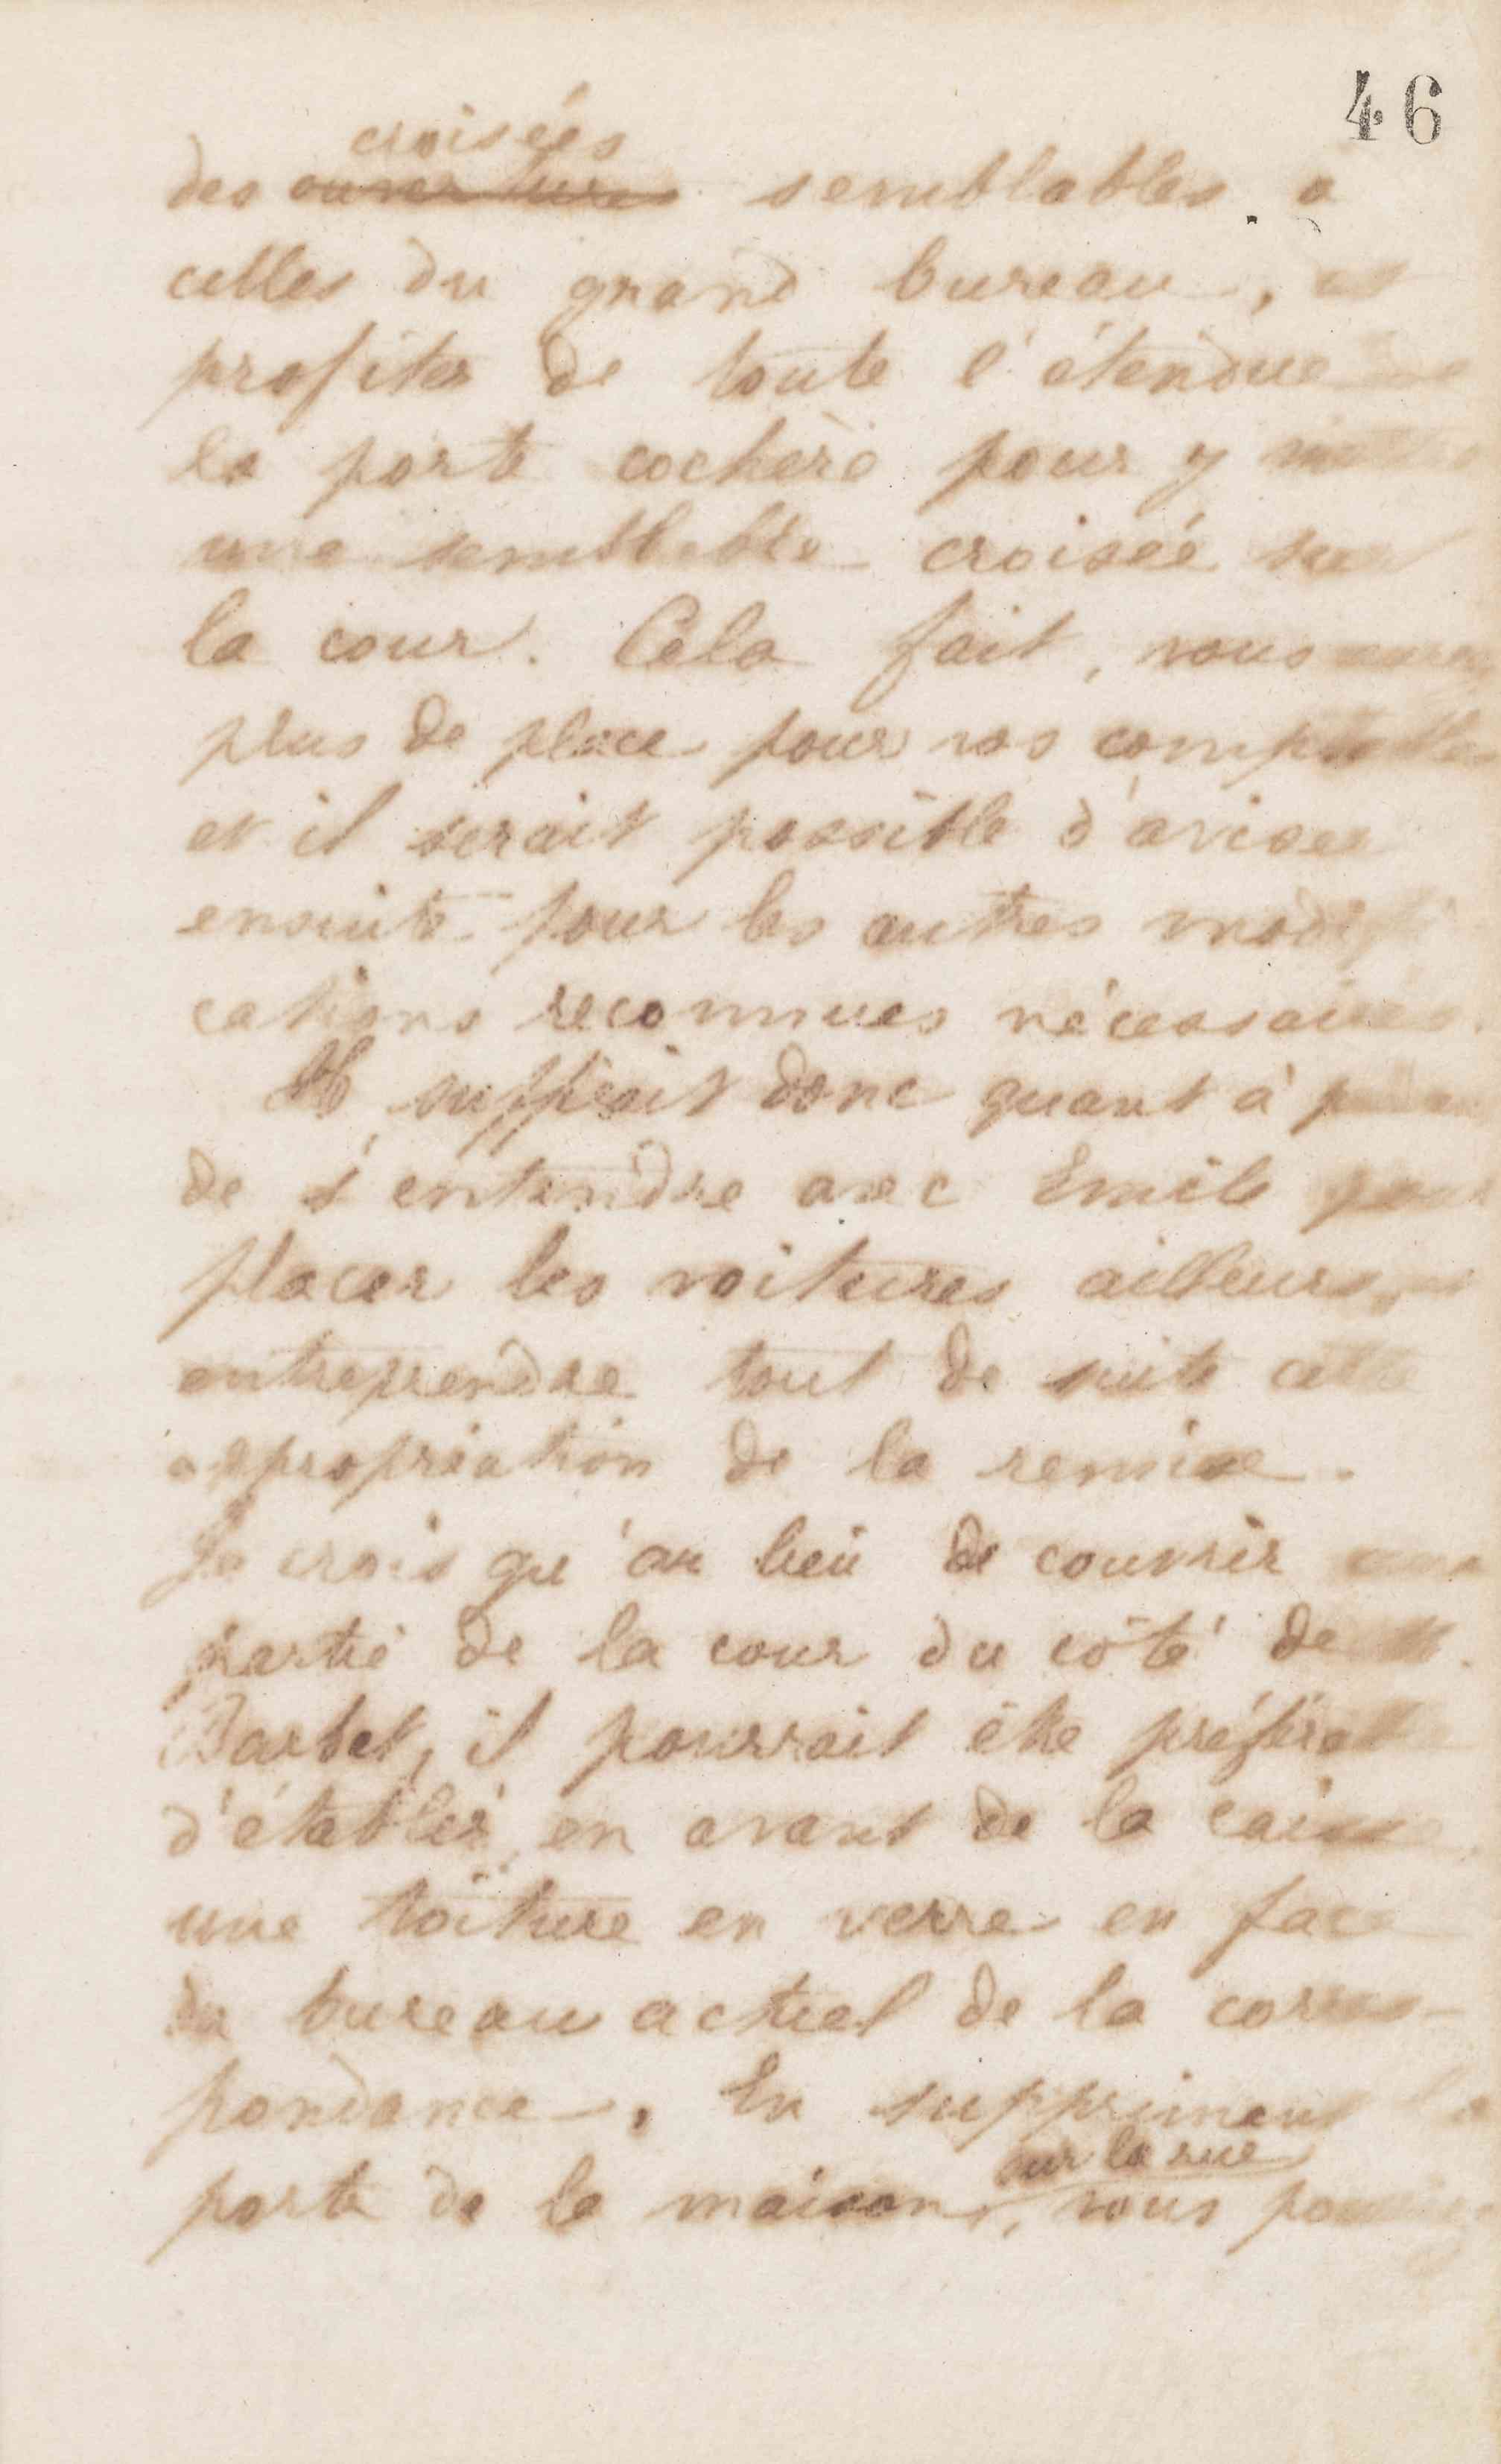 46
croisées
des ouvertures semblables a
celles du grand bureau, et
profiter de toute l'étendue de
la porte cochère pour y mettre
une semblable croisée sur
la cour. Cela fait, nous aurons
plus de place pour nos comptables
et il serait possible d'aviser
ensuite pour les autres modifi
cations reconnues nécessaires.
Il suffirait donc quant à
de s'entendre avec Emile pour
placer les voitures ailleurs, et
entreprendre tout de suite cette
appropriation de la remise.
Je crois qu'au lieu de couvrir une
partie de la cour du côté de M.
Barbet, il pourrait être préférable
d'établir en avant de la caisse
une toiture en verre en face
du bureau actuel de la corres-
pondance. En supprimant la
sur la rue
porte de la maison, nous